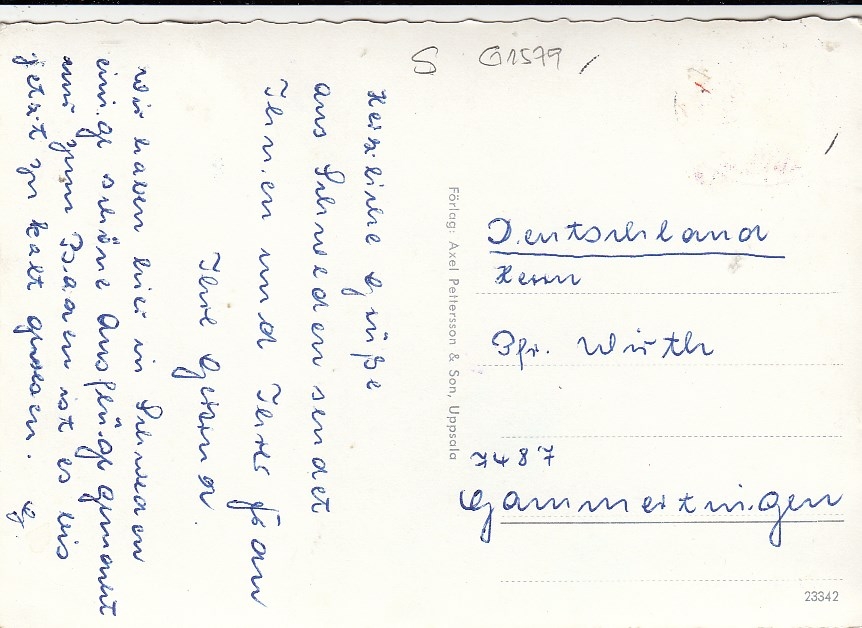 S G1579
Herzliche Grüße
aus Schweden sendet
Ihnen und Ihrer Frau
Ihre
Wir haben hier in Schweden
einige schöne Ausflüge gemacht
nur zum Baden ist es bis
jetzt zu kalt gewesen. G.
Förlag: Axel Pettersson & Son, Uppsala
Deutschland
Herrn
Pfr. Wirth
7487
Gammertingen
23342